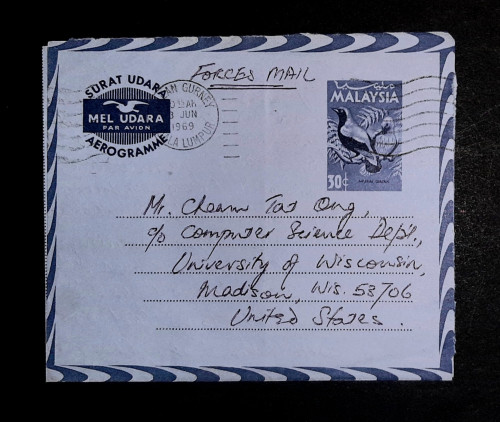 FORCES MAIL
SURAT UDARA
MEL UDARA
PAR AVION
AEROGRAMME
GURNEY
JUN
1969
KUALA LUMPUR
مليسيا
MALAYSIA
30¢
Mr. Cheam Tat Ong,
c/o Computer Science Dept.,
University of Wisconsin,
Madison, Wis. 53706
United States.